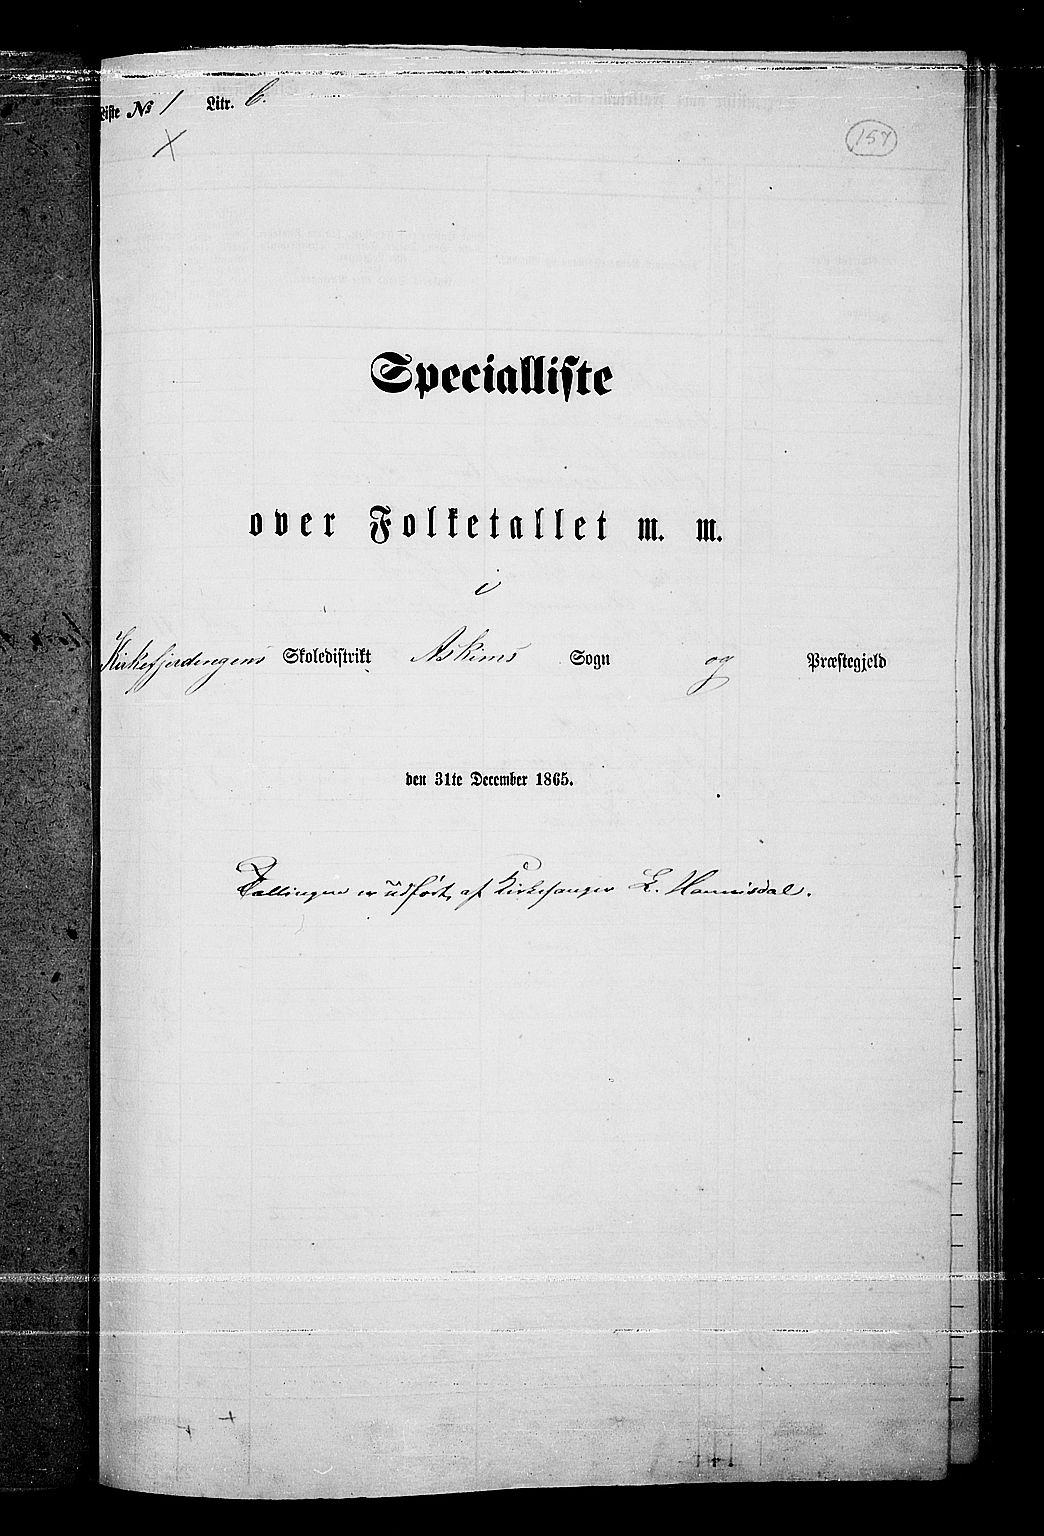 Liste № 1 Litr. C.
157
Specialliste
over Folketallet m. m.
i
Kirkefjerdingens Skoledistrikt Askims Sogn og Præstegjeld
den 31te December 1865.
Tællingen er udført af Kirkesanger L. Hannisdal.